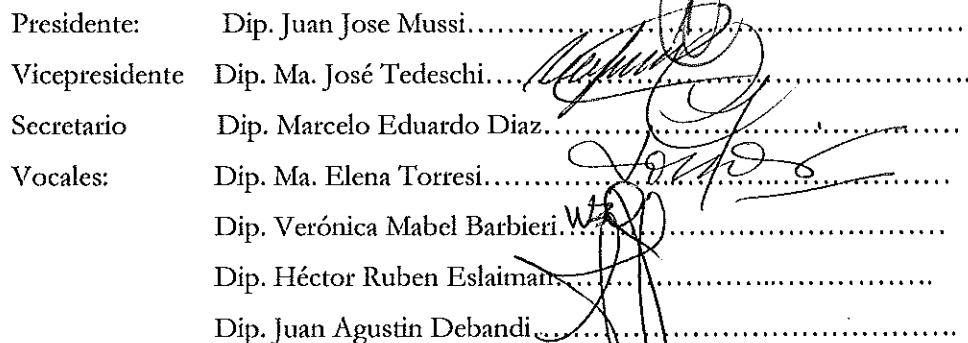 Presidente: Dip. Juan Jose Mussi
Vicepresidente Dip. Ma. José Tedeschi
Secretario Dip. Marcelo Eduardo Diaz
Vocales: Dip. Ma. Elena Torresi
Dip. Verónica Mabel Barbieri
Dip. Héctor Ruben Eslaiman
Dip. Juan Agustin Debandi